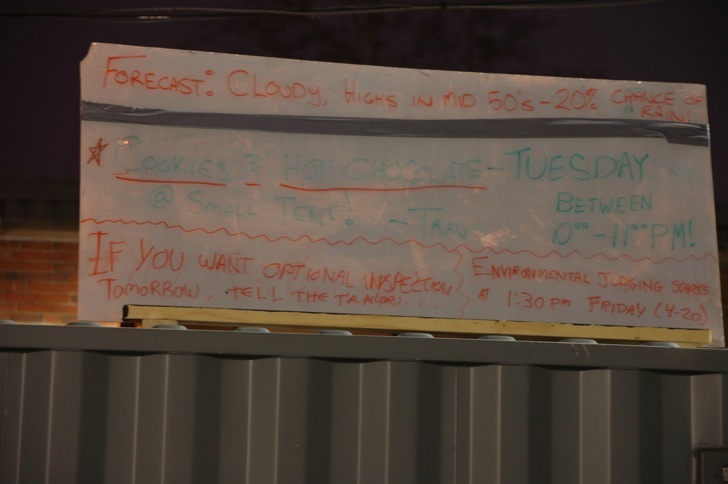 FORECAST: CLOUDY, HIGHS IN MID 50's - 20% CHANCE OF RAIN!
☆ COOKIES & HOT CHOCOLATE - TUESDAY
@ SMALL TENT! - TRAV
BETWEEN
10⁰⁰ - 11⁰⁰ PM!
IF YOU WANT OPTIONAL INSPECTION
TOMORROW, TELL THE TRAILER!
ENVIRONMENTAL JUDGING STARTS
AT 1:30 PM FRIDAY (4-20)